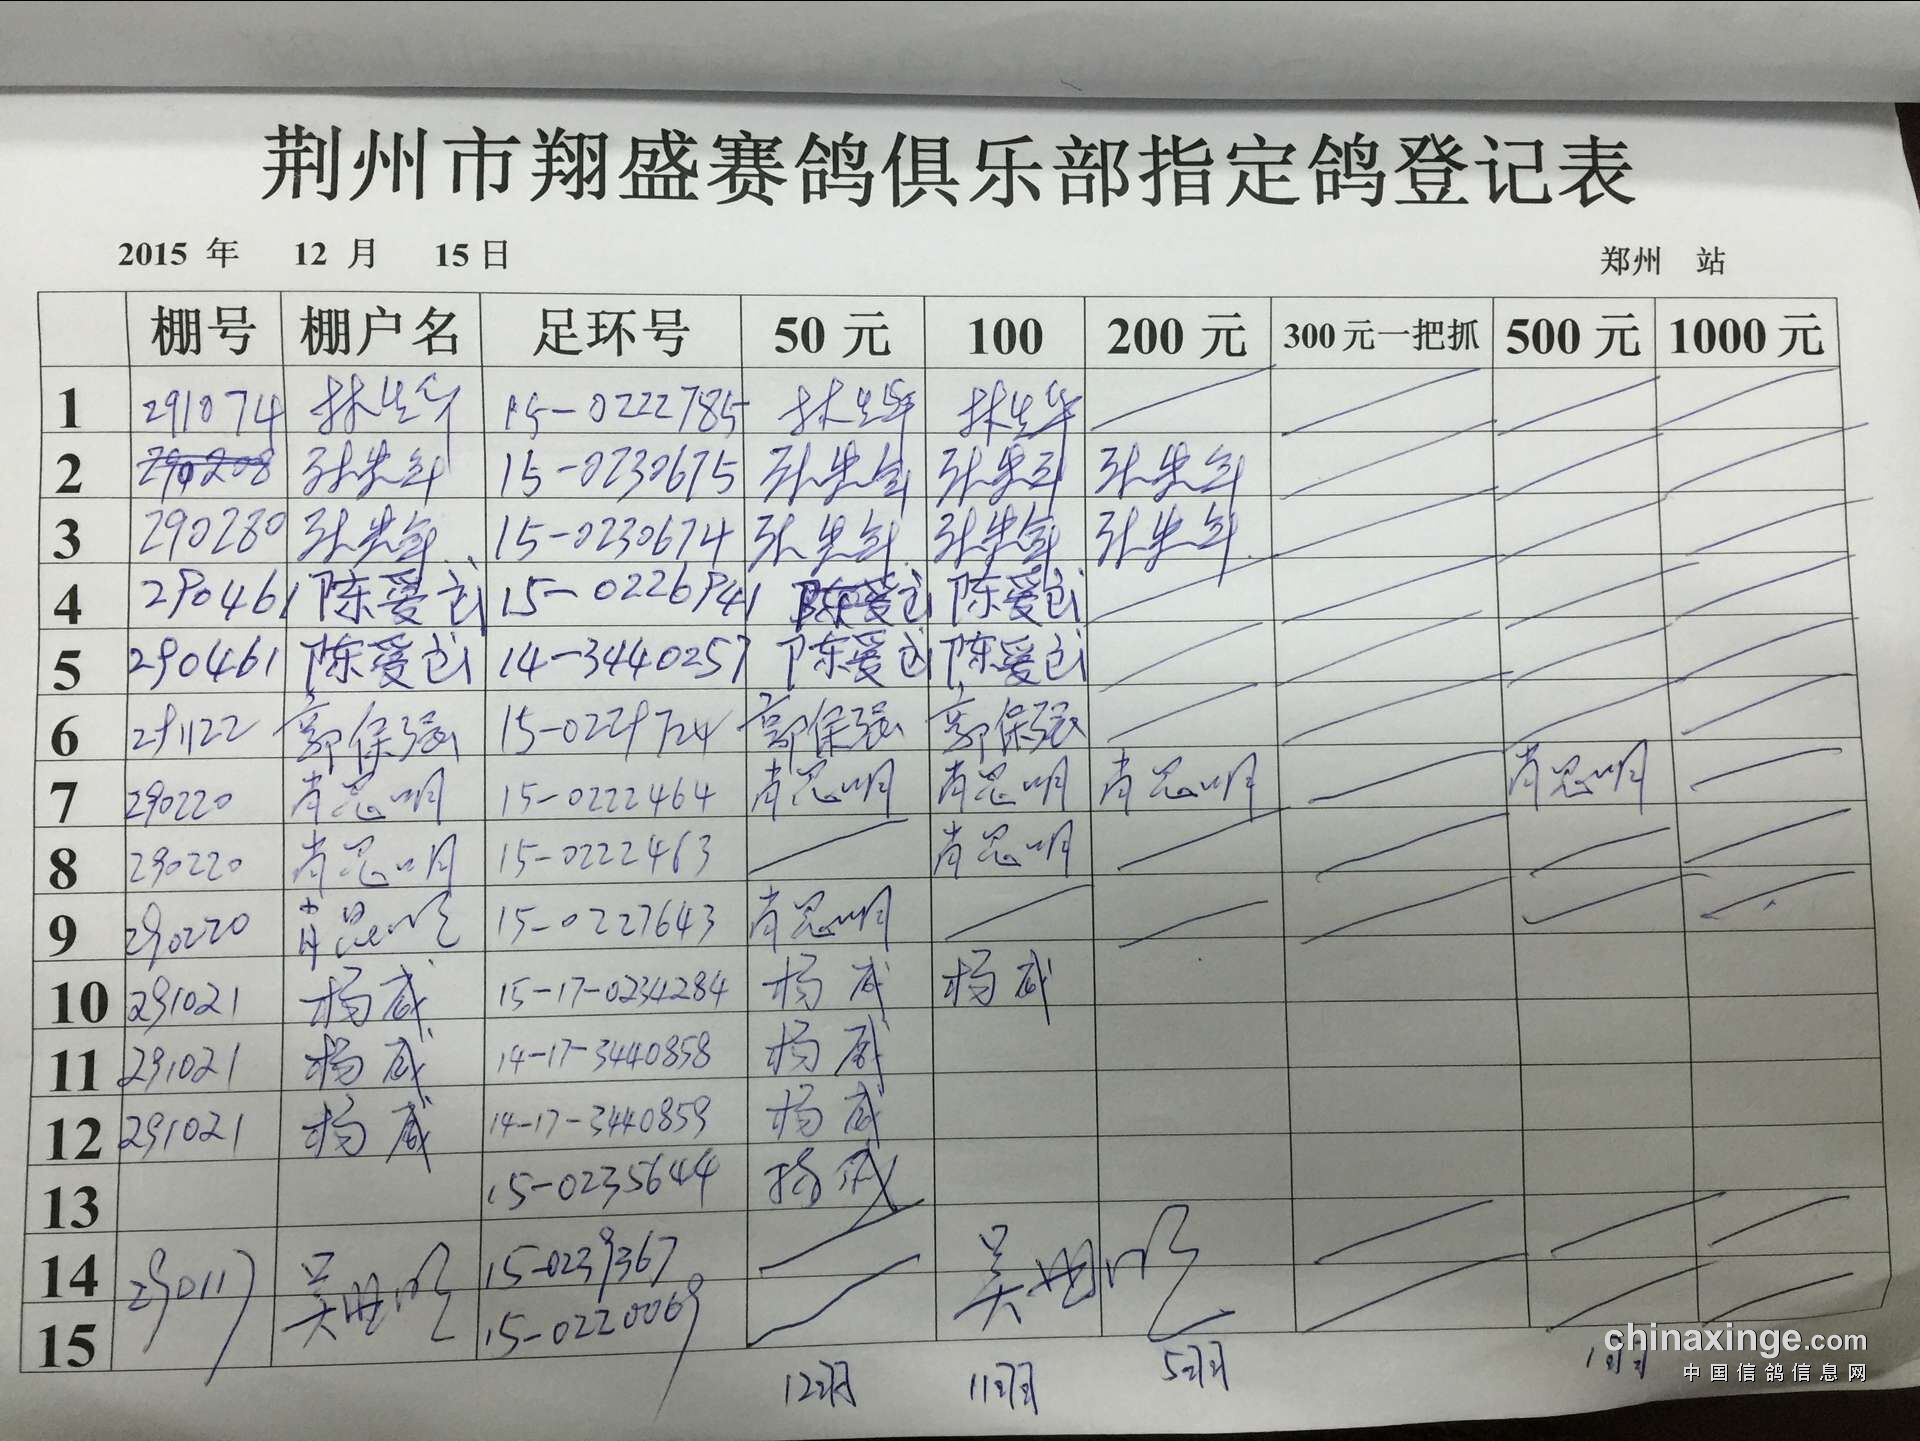 荆州市翔盛赛鸽俱乐部指定鸽登记表
2015 年 12 月 15日 郑州 站
棚号 棚户名 足环号 50 元 100 200 元 300 元一把抓 500 元 1000 元
1 291074 林生华 15-0222785 林生华 林生华
2 290208 张先年 15-0230675 张先年 张先年 张先年
3 290280 张先年 15-0230674 张先年 张先年 张先年
4 290461 陈爱武 15-0226941 陈爱武 陈爱武
5 290461 陈爱武 14-3440257 陈爱武 陈爱武
6 291122 郭保强 15-0229724 郭保强 郭保强
7 290220 肖思明 15-0222464 肖思明 肖思明 肖思明 肖思明
8 290220 肖思明 15-0222463 肖思明
9 290220 肖思明 15-0227643 肖思明
10 291021 杨威 15-17-0234284 杨威 杨威
11 291021 杨威 14-17-3440858 杨威
12 291021 杨威 14-17-3440859 杨威
13 15-0235644 杨威
14 290117 吴明 15-0239367 吴明
15 15-0220069
12羽 11羽 5羽 1羽
chinaxinge.com
中国信鸽信息网